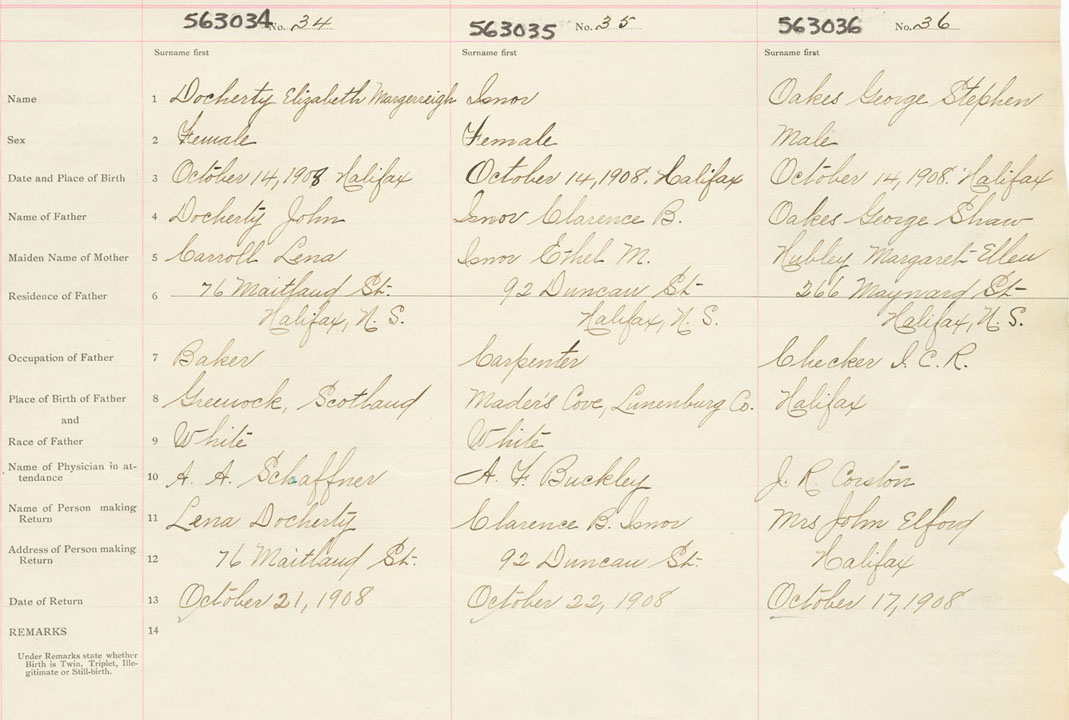 563034 No. 34 563035 No. 35 563036 No. 36
Surname first Surname first Surname first
Name 1 Docherty Elizabeth Margerreigh Isnor Oakes George Stephen
Sex 2 Female Female Male
Date and Place of Birth 3 October 14, 1908. Halifax October 14, 1908. Halifax October 14, 1908. Halifax
Name of Father 4 Docherty John Isnor Clarence B. Oakes George Shaw
Maiden Name of Mother 5 Carroll Lena Isnor Ethel M. Hubley Margaret Ellen
Residence of Father 6 76 Maitland St. 92 Duncan St 266 Maynard St
Halifax, N. S. Halifax, N. S. Halifax, N. S.
Occupation of Father 7 Baker Carpenter Checker I. C. R.
Place of Birth of Father 8 Greenock, Scotland Mader's Cove, Lunenburg Co. Halifax
and
Race of Father 9 White White
Name of Physician in at-
tendance 10 A. A. Schaffner A. F. Buckley J. R. Corston
Name of Person making
Return 11 Lena Docherty Clarence B. Isnor Mrs John Elford
Address of Person making
Return 12 76 Maitland St. 92 Duncan St. Halifax
Date of Return 13 October 21, 1908 October 22, 1908 October 17, 1908
REMARKS 14
Under Remarks state whether
Birth is Twin, Triplet, Ille-
gitimate or Still-birth.